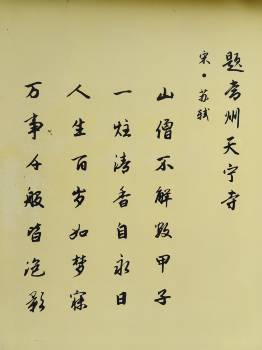 题常州天宁寺
宋·苏轼
山僧不解数甲子
一炷清香自永日
人生百岁如梦寐
万事千般皆泡影